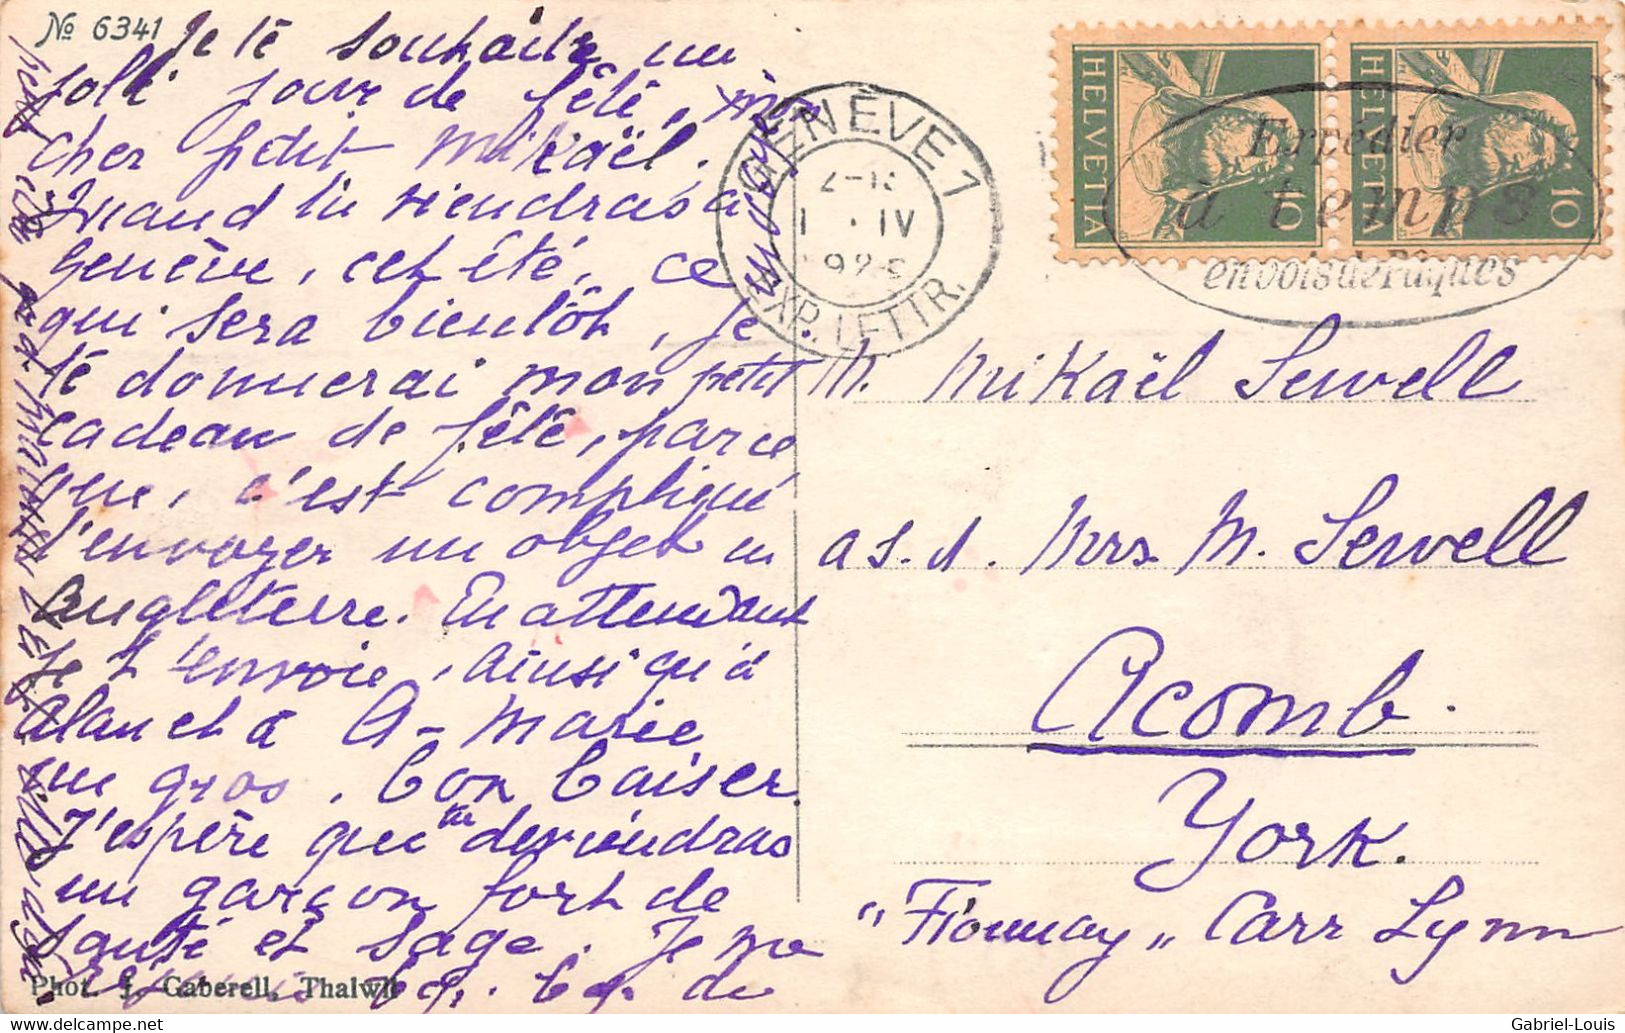 № 6341
Je te souhaite un
joli jour de fête, mon
cher petit Mikaël.
Quand tu viendras à
Genève, cet été, ce
qui sera bientôt, je
te donnerai mon petit
cadeau de fête, parce
que, c'est compliqué
d'envoyer un objet en
Angleterre. En attendant
je t'envoie, ainsi qu'à
Alan et à A-Marie
un gros, bon baiser
J'espère que tu deviendras
un garçon fort de
santé et sage. Je me
de
Phot. J. Gaberell, Thalwil
GENÈVE 1
1 . IV
EXP. LETTR.
HELVETIA 10
HELVETIA 10
Expédier
à temps
envois de Pâques
M. Mikaël Sewell
a s. d. Mrs. M. Sewell
Acomb.
York.
"Fionnay" Carr Lynn
Gabriel-Louis